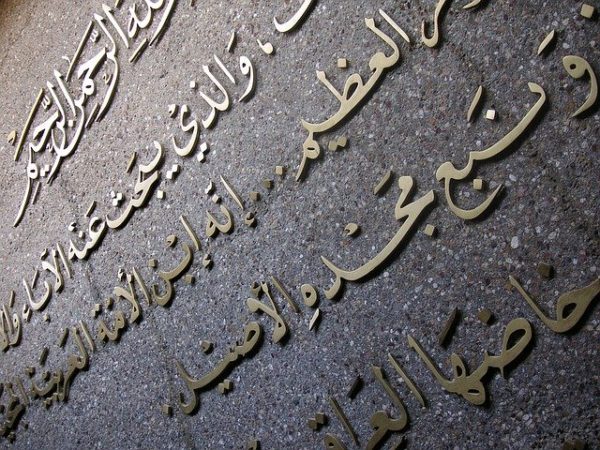 الله الرَّحمن الرَّحيم
وَالذي يبحث عَنهُ الآباء
العظيم ... إنّه إبْن الأمّة العربيّة
وَنَبع مَجْدهِ الأصيْل
حاضنها العراق